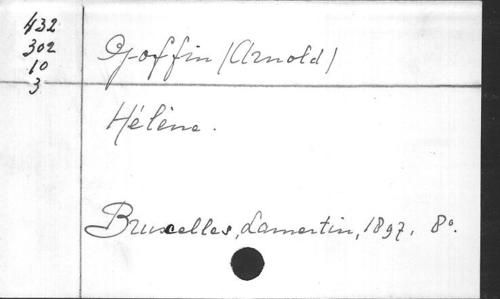 432
302
10
3
Goffin (Arnold)
Hélène.
Bruxelles, Lamertin, 1897. 8°.